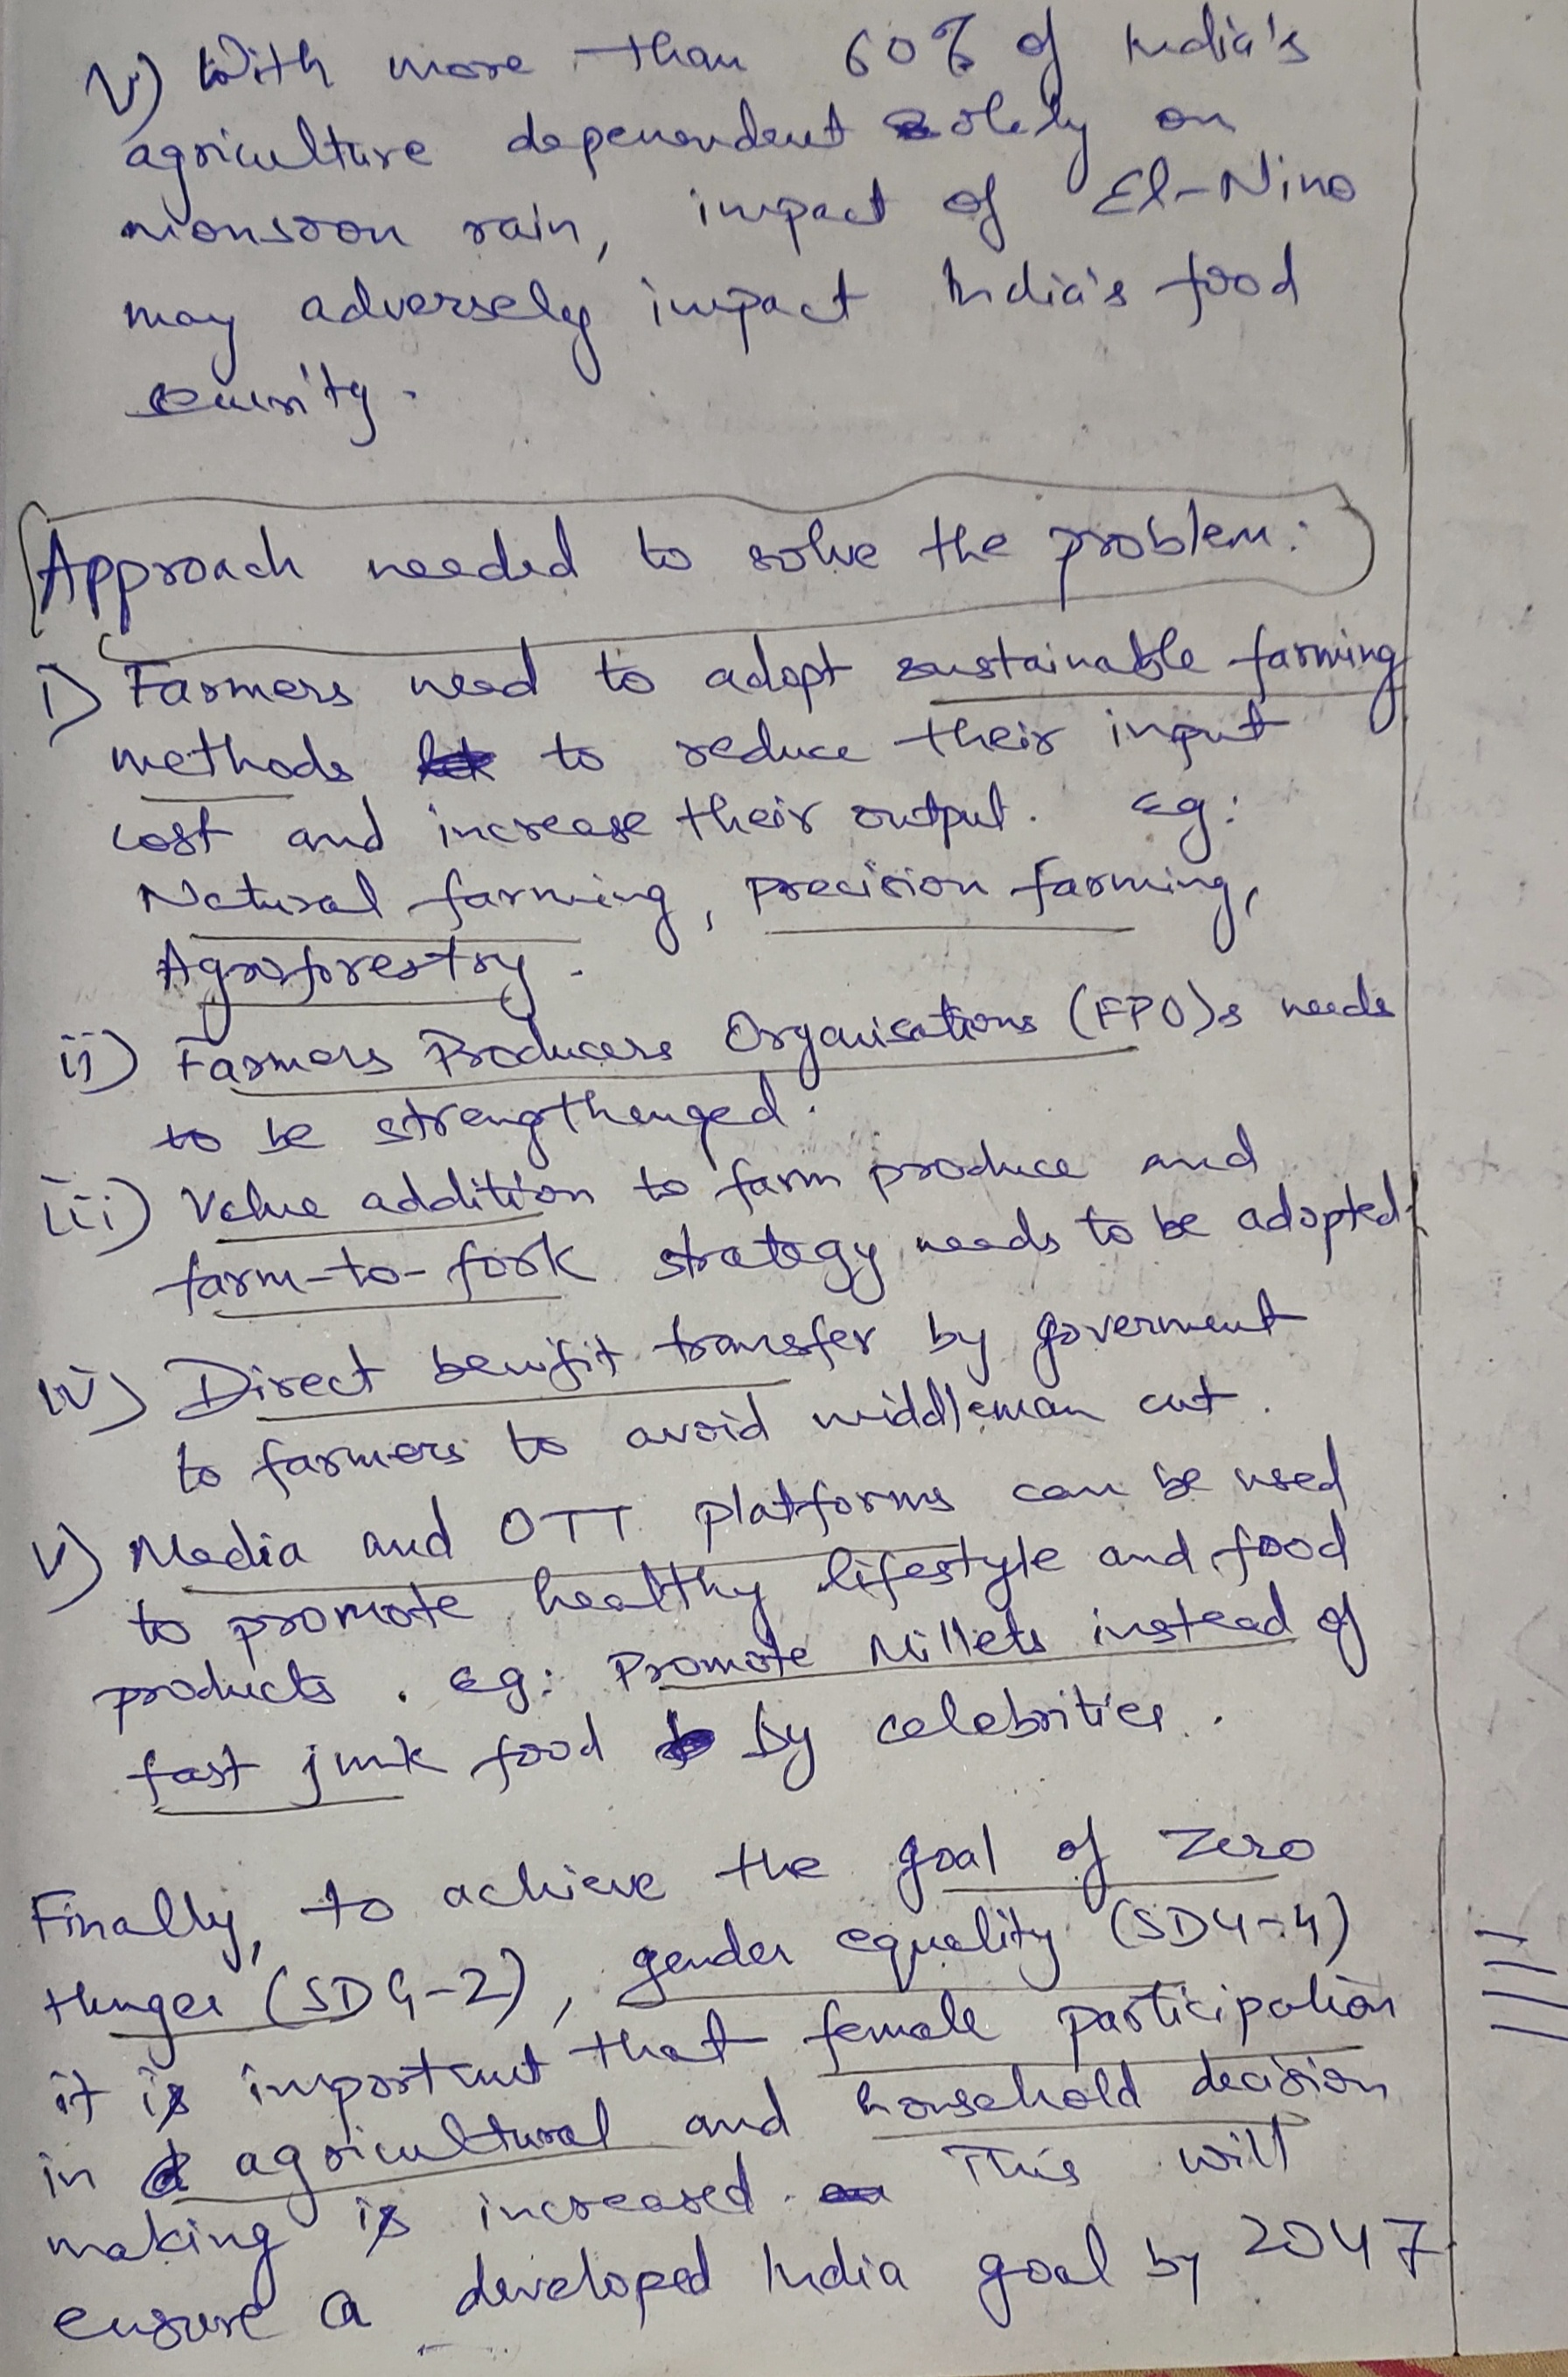 v) With more than 60% of India's
agriculture dependent solely on
monsoon rain, impact of El-Nino
may adversely impact India's food
security.
Approach needed to solve the problem:
i) Farmers need to adopt sustainable farming
methods to reduce their input
cost and increase their output. Eg:
Natural farming, precision farming,
Agroforestry.
ii) Farmers Producers Organisations (FPO)s needs
to be strengthenged.
iii) Value addition to farm produce and
farm-to-fork strategy needs to be adopted.
iv) Direct benifit transfer by goverment
to farmers to avoid middleman cut.
v) Media and OTT platforms can be used
to promote healthy lifestyle and food
products. Eg: Promote Millets instead of
fast junk food by celebrities.
Finally, to achieve the goal of Zero
Hunger (SDG-2), gender equality (SDG-4)
it is important that female participation
in agricultural and household decision
making is increased. This will
ensure a developed India goal by 2047